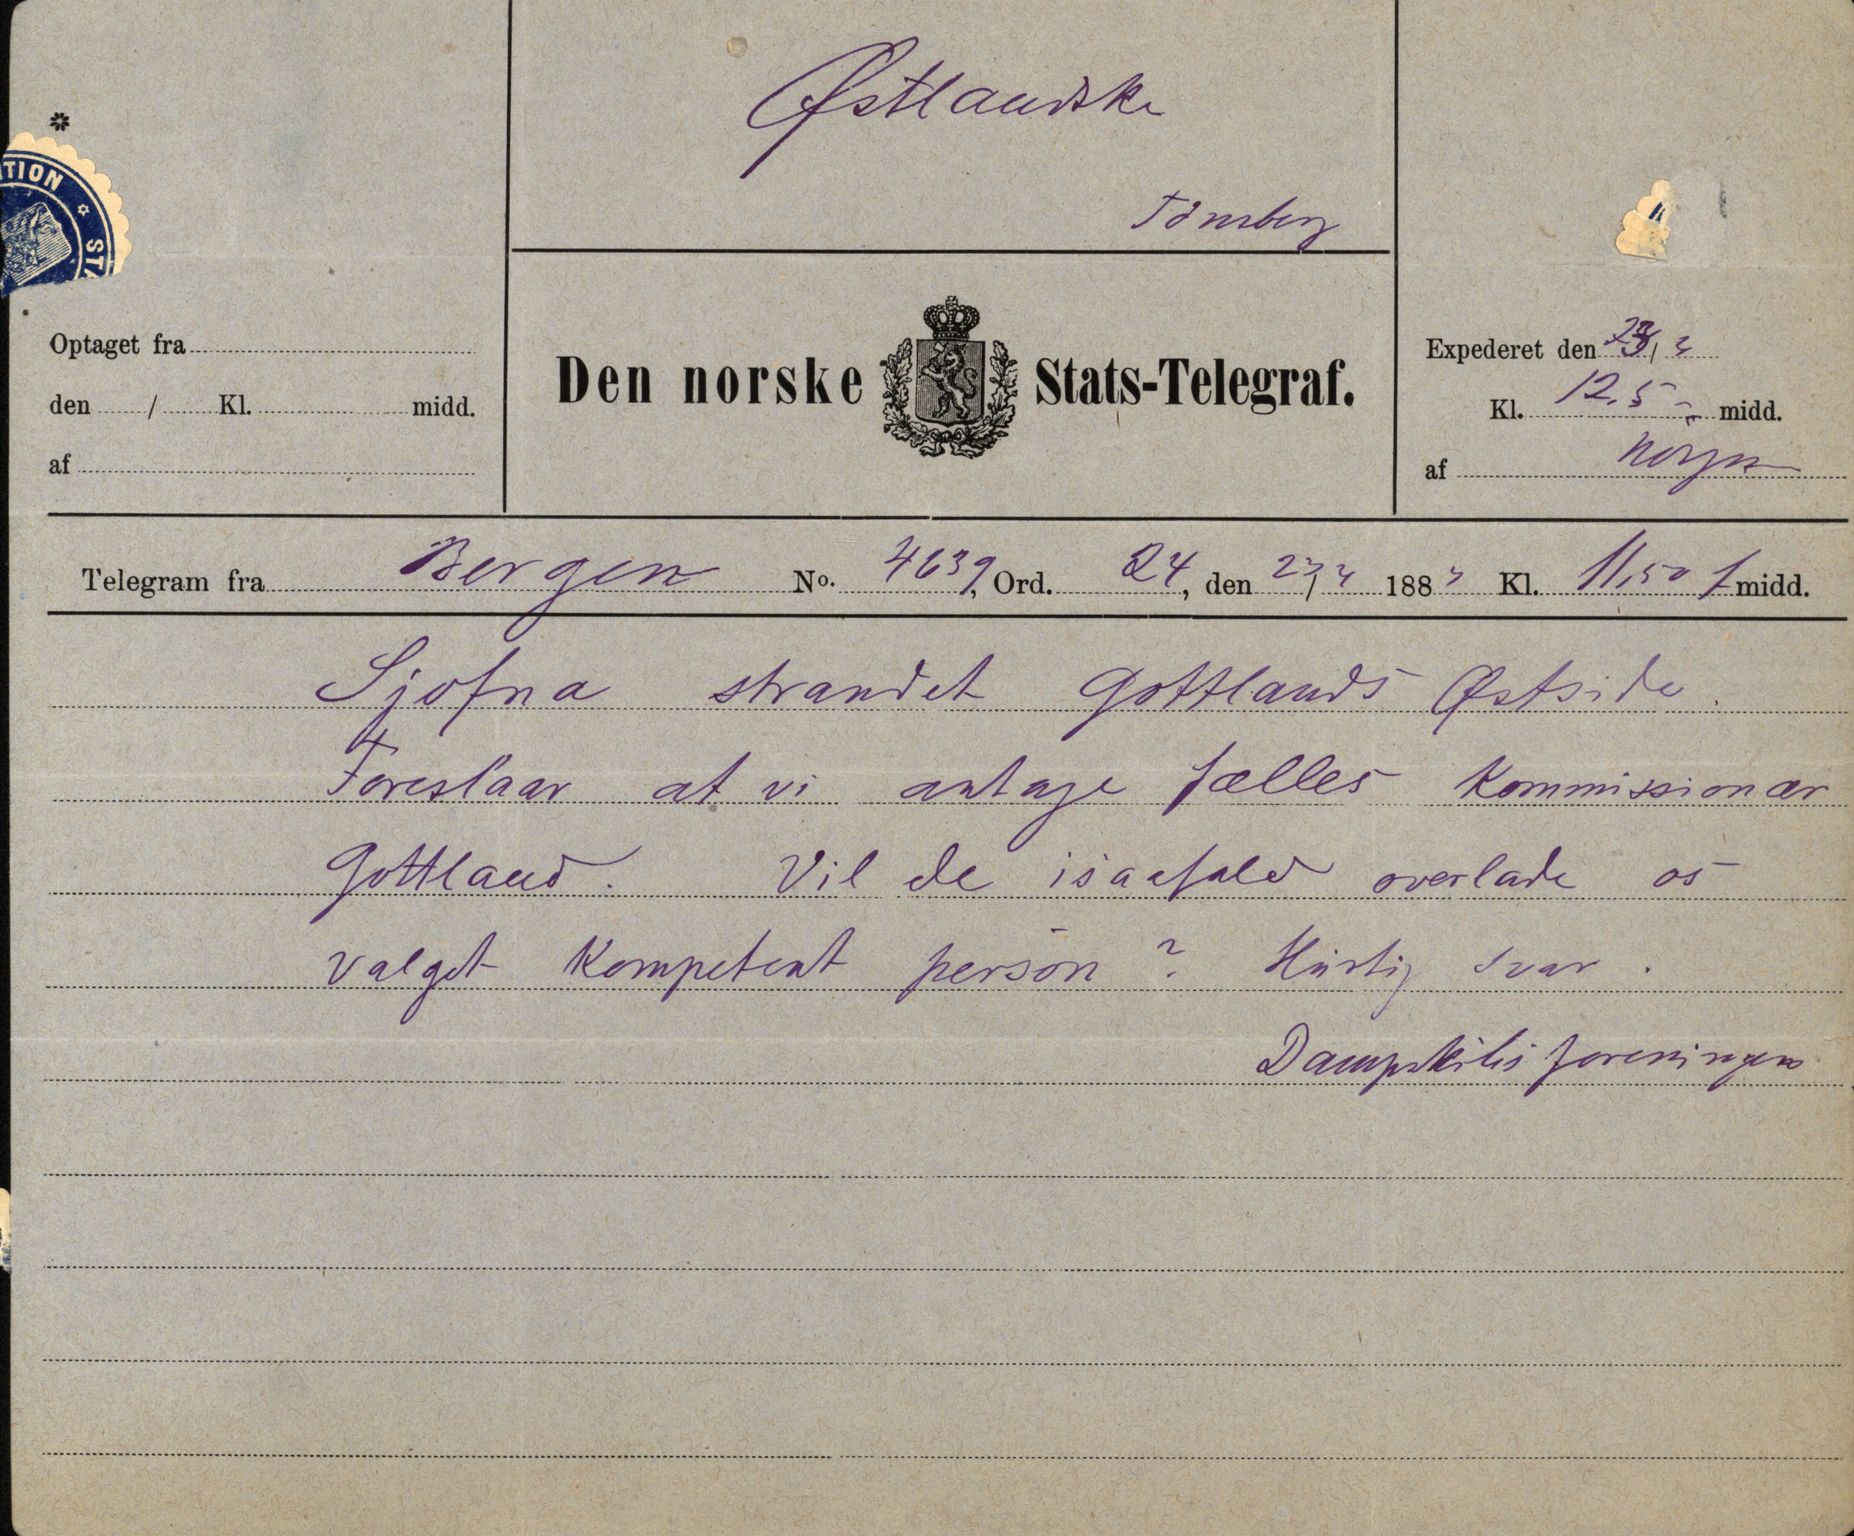 Østlandske
Tönsberg
TION STA
Optaget fra
den / Kl. midd.
af
Den norske Stats-Telegraf.
Expederet den 23/3
Kl. 12,5 midd.
af
Telegram fra Bergen No. 4639, Ord. 24, den 23/3 1883 Kl. 11,50 f midd.
Sjofna strandet Gottlands Østside.
Foreslaar at vi antage fælles Kommissionær
Gottland. Vil de isaafald overlade os
valget Kompetent person? Hurtig svar.
Dampskibsforeningen